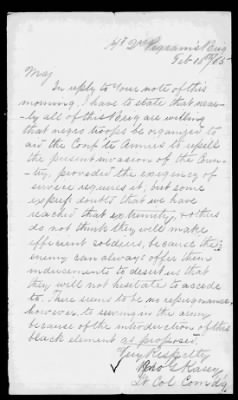 Hd Qrs Pegram's Brig
Feb 18th /65
Maj
In reply to your note of this
morning, I have to state that near-
ly all of this Brig are willing
that negro troops be organized to
aid the Conf'te Armies to repell
the present invasion of the Coun-
try, provided the exigency of
service requires it, but some
express doubts that we have
reached that extremity, & others
do not think they will make
efficient soldiers, because the
enemy can always offer them
inducements to desert us that
they will not hesitate to accede
to. There seems to be no repugnance
however to serving in the army
because of the introduction of this
black element as proposed.
Very Respectly
Jno G Kasey
Lt Col Com'dg